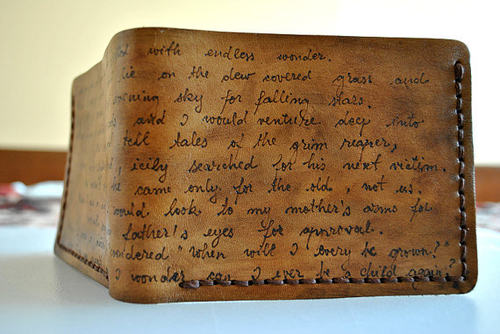 with endless wonder.
lie on the dew covered grass and
morning sky for falling stars.
and I would venture deep into
tell tales of the grim reaper,
icily searched for his next victim.
came only for the old, not us.
would look to my mother's arms for
father's eyes for approval.
"When will I every be grown?"
I wonder can I ever be a child again?